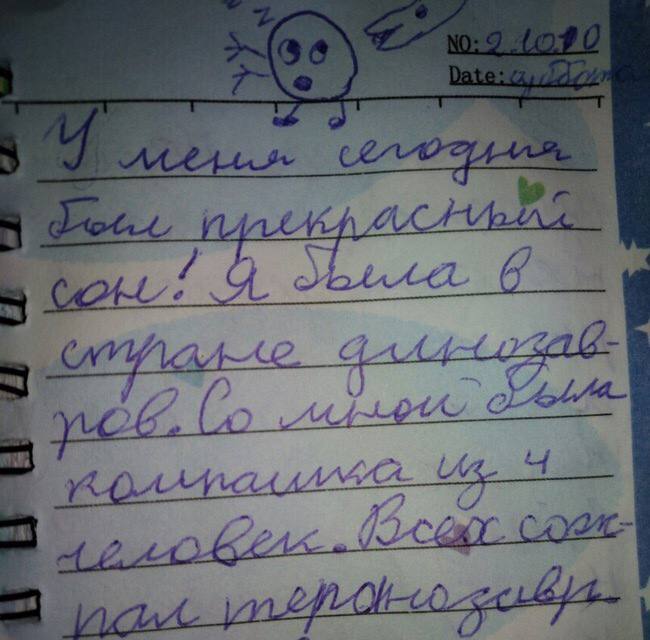 NO: 2.10.10
Date: суббота
У меня сегодня
был прекрасный
сон! Я была в
стране динозав-
ров. Со мной была
компашка из 4
человек. Всех сож-
рал теронозавр.